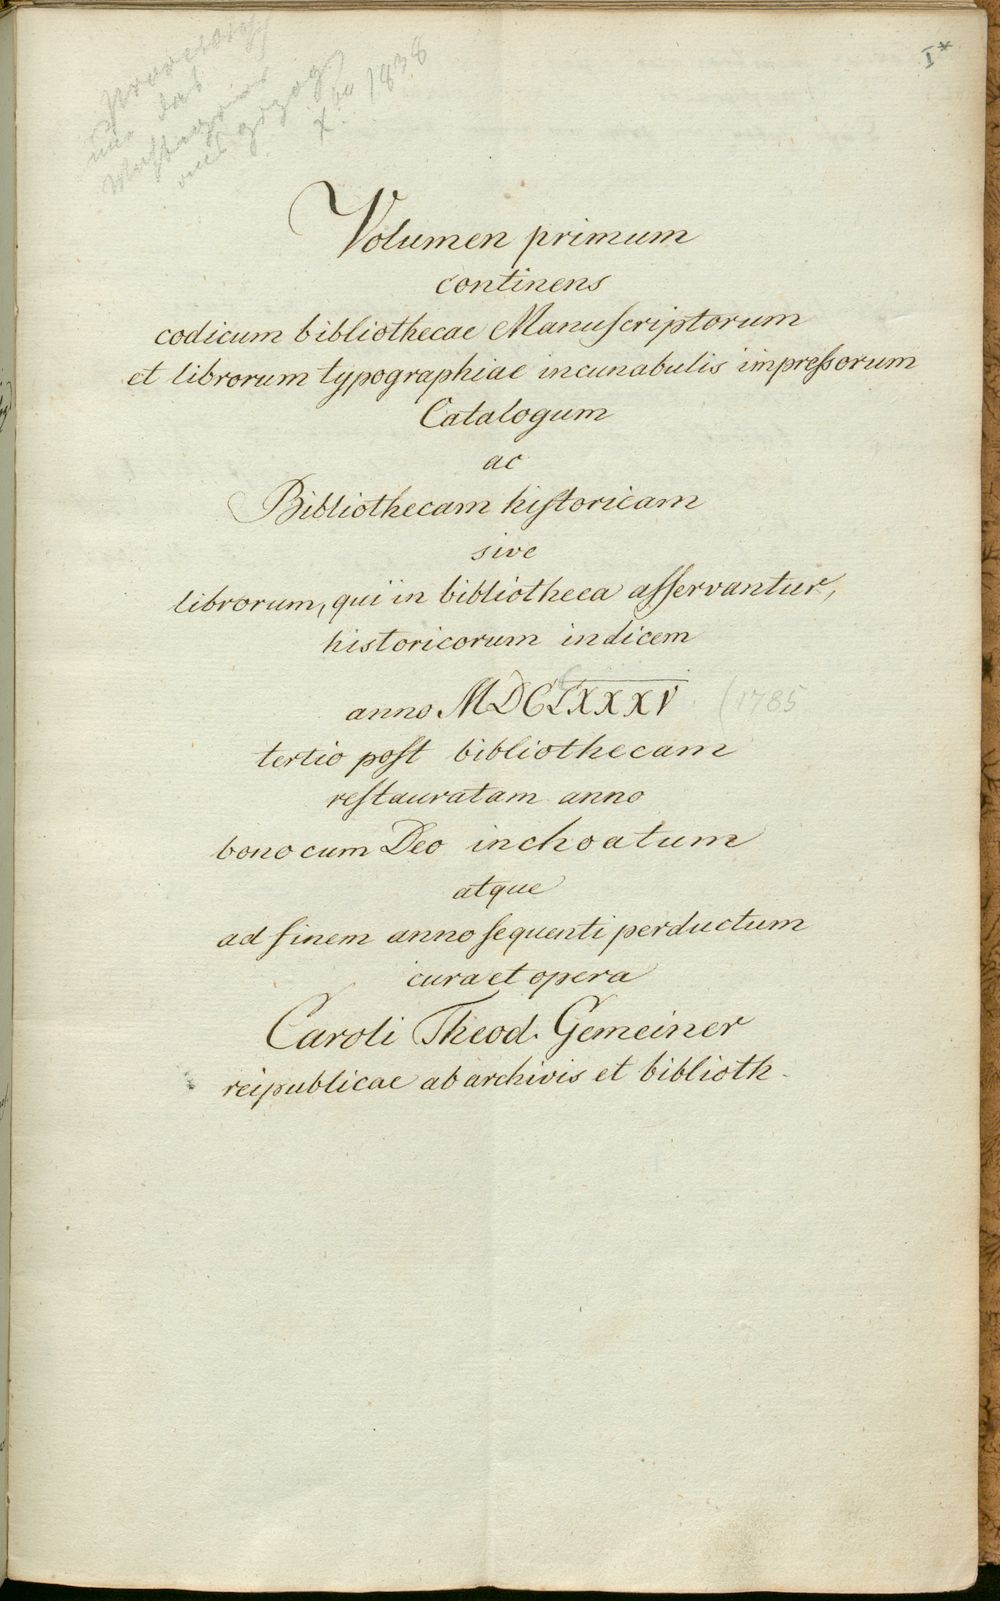 I*
1838
Volumen primum
continens
codicum bibliothecae Manuſcriptorum
et librorum typographiae incunabulis impreſsorum
Catalogum
ac
Bibliothecam hiſtoricam
sive
librorum, qui in bibliotheca aſservantur,
historicorum indicem
anno MDCCLXXXV (1785
tertio poſt bibliothecam
reſtauratam anno
bono cum Deo inchoatum
atque
ad finem anno ſequenti perductum
cura et opera
Caroli Theod. Gemeiner
reipublicae ab archivis et biblioth.